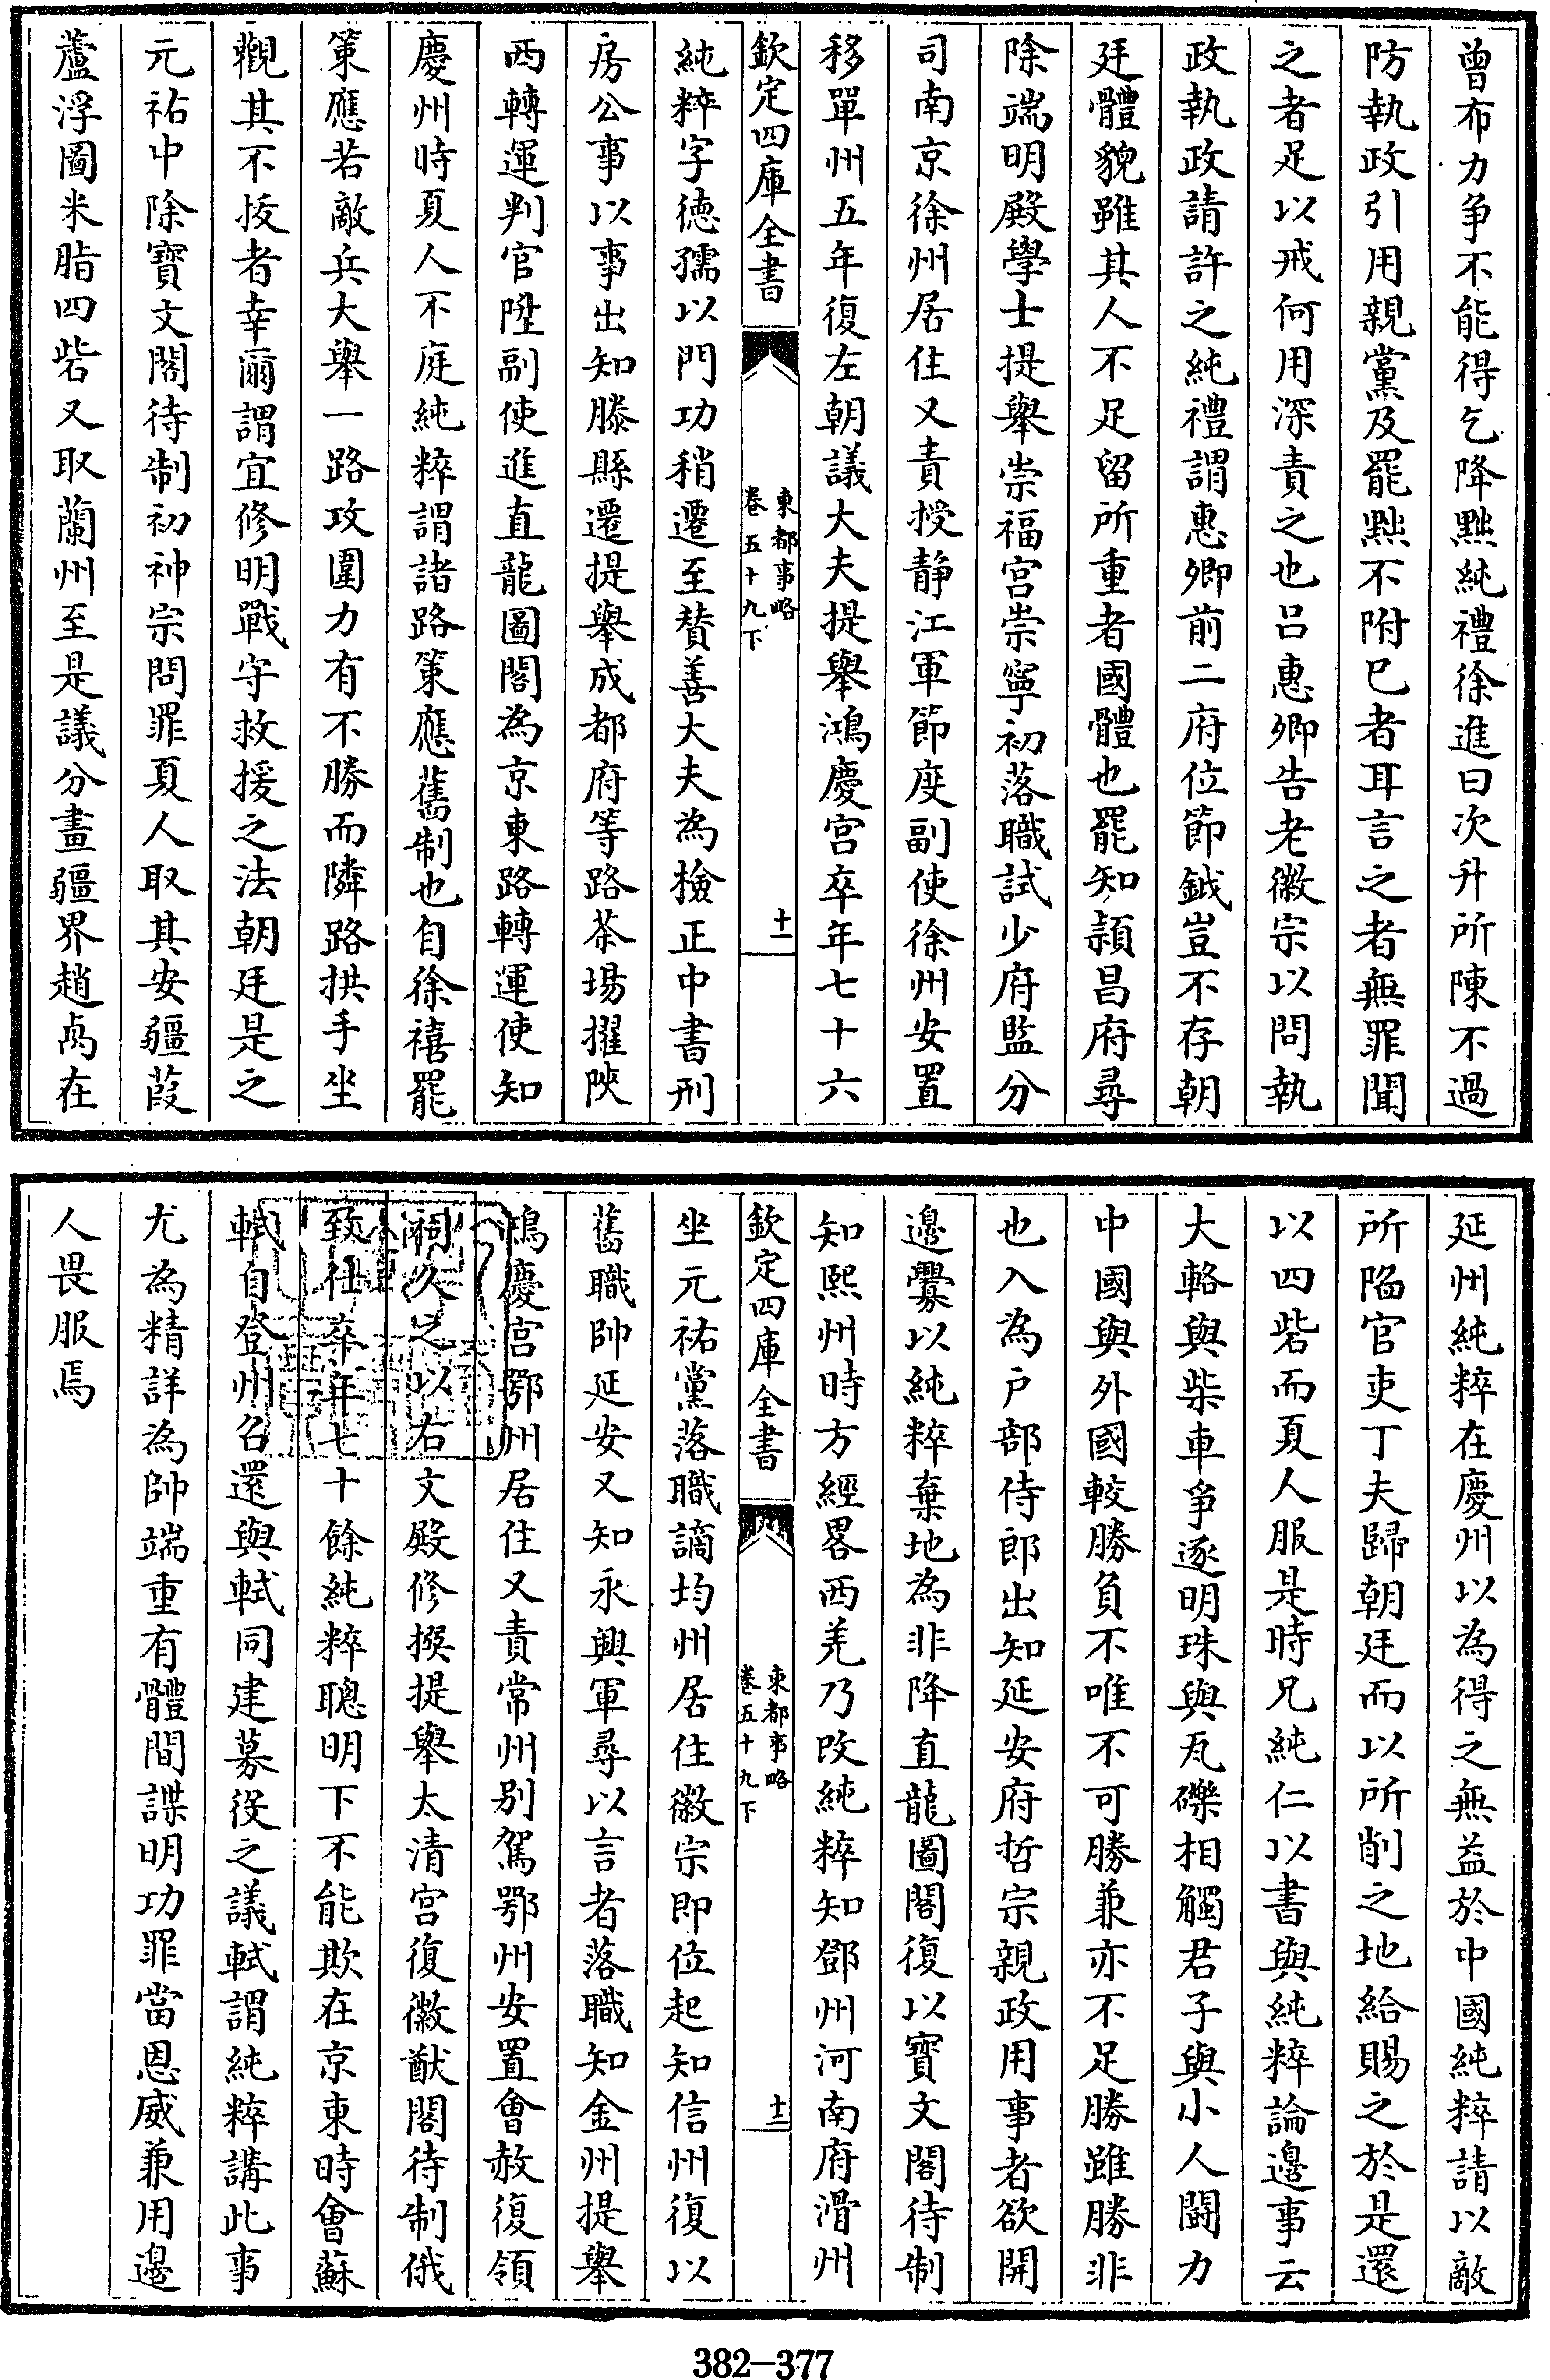 曾布力爭不能得乞降黜純禮徐進曰次升所陳不過
防執政引用親黨及罷黜不附巳者耳言之者無罪聞
之者足以戒何用深責之也吕惠卿告老徽宗以問執
政執政請許之純禮謂惠卿前二府位節鉞豈不存朝
廷體貌雖其人不足留所重者國體也罷知潁昌府尋
除端明殿學士提舉崇福宫崇寧初落職試少府監分
司南京徐州居住又責授静江軍節度副使徐州安置
移單州五年復左朝議大夫提舉鴻慶宫卒年七十六
欽定四庫全書
東都事略
卷五十九下
十一
純粹字徳孺以門功稍遷至賛善大夫為檢正中書刑
房公事以事出知滕縣遷提舉成都府等路茶場擢陜
西轉運判官陞副使進直龍圖閣為京東路轉運使知
慶州時夏人不庭純粹謂諸路策應舊制也自徐禧罷
策應若敵兵大舉一路攻圍力有不勝而隣路拱手坐
觀其不拔者幸爾謂宜修明戰守救援之法朝廷是之
元祐中除寳文閣待制初神宗問罪夏人取其安疆葭
蘆浮圖米脂四砦又取蘭州至是議分畫疆界趙卨在
延州純粹在慶州以為得之無益於中國純粹請以敵
所陷官吏丁夫歸朝廷而以所削之地給賜之於是還
以四砦而夏人服是時兄純仁以書與純粹論邊事云
大輅與柴車爭逐明珠與瓦礫相觸君子與小人鬬力
中國與外國較勝負不唯不可勝兼亦不足勝雖勝非
也入為户部侍郎出知延安府哲宗親政用事者欲開
邊釁以純粹棄地為非降直龍圖閣復以寳文閣待制
知熙州時方經畧西羌乃改純粹知鄧州河南府滑州
欽定四庫全書
東都事略
卷五十九下
十二
坐元祐黨落職謫均州居住徽宗即位起知信州復以
舊職帥延安又知永興軍尋以言者落職知金州提舉
鴻慶宫鄂州居住又責常州别駕鄂州安置會赦復領
祠久之以右文殿修撰提舉太清宫復徽猷閣待制俄
致仕卒年七十餘純粹聰明下不能欺在京東時會蘇
軾自登州召還與軾同建募役之議軾謂純粹講此事
尤為精詳為帥端重有體間諜明功罪當恩威兼用邊
人畏服焉
382—377